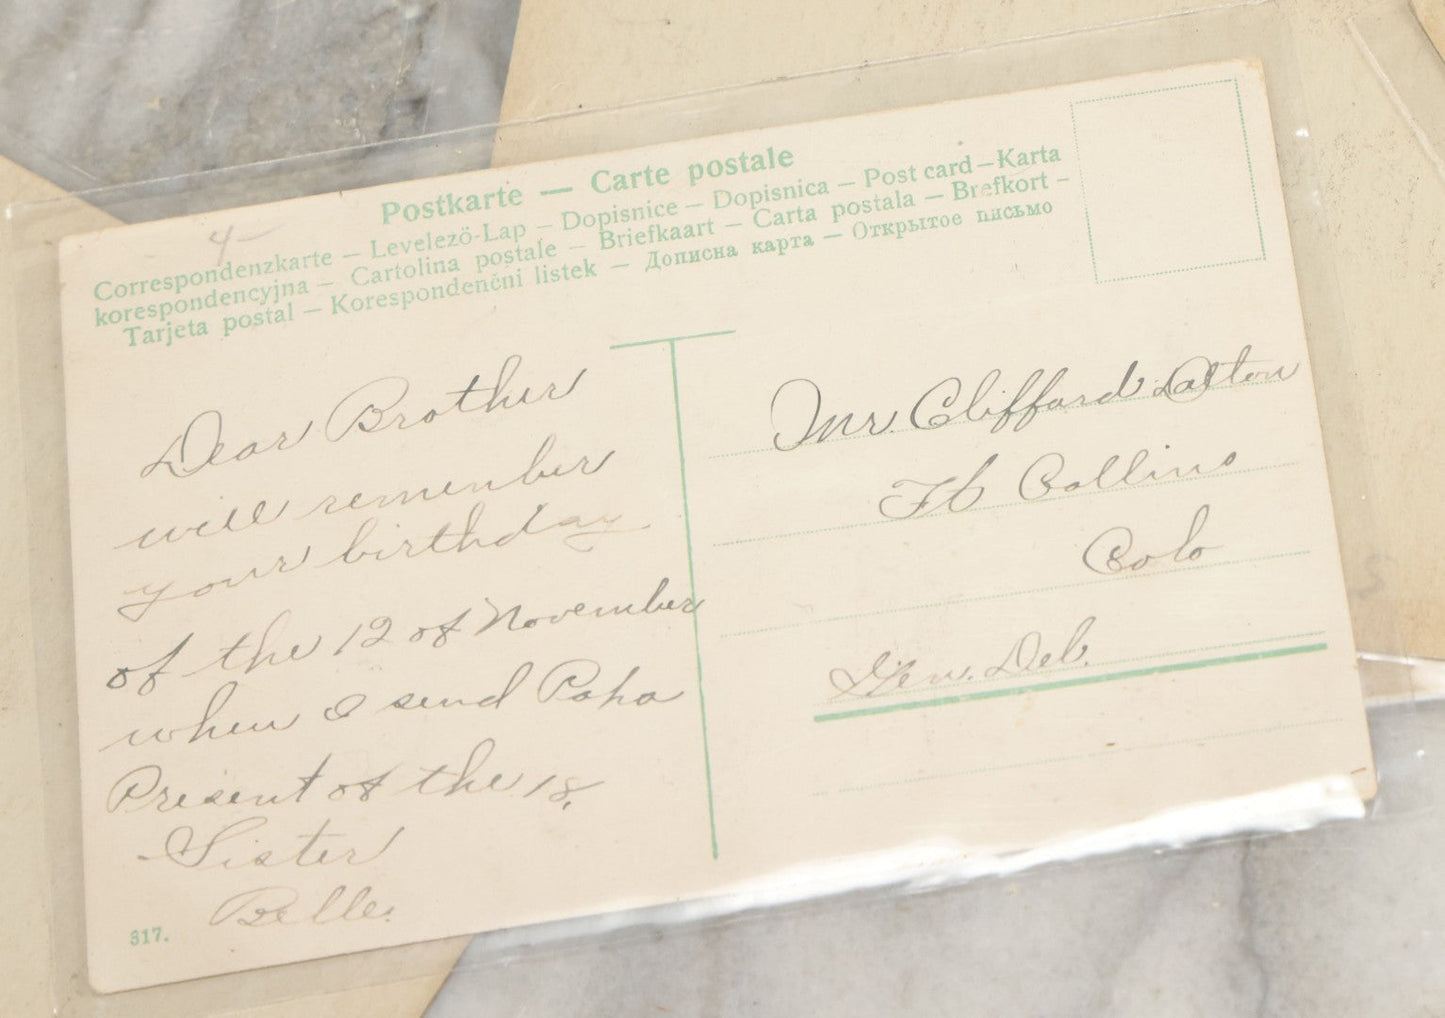 4-
Postkarte — Carte postale
Correspondenzkarte — Levelező-Lap — Dopisnice — Dopisnica — Post card — Karta
korespondencyjna — Cartolina postale — Briefkaart — Carta postala — Brefkort —
Tarjeta postal — Korespondenční listek — Дописна карта — Открытое письмо
Dear Brother
will remember
your birthday
of the 12 of November
when I send Papa
Present of the 18.
Sister
Belle.
317.
Mr. Clifford
Ft Collins
Colo
Gen. Del.